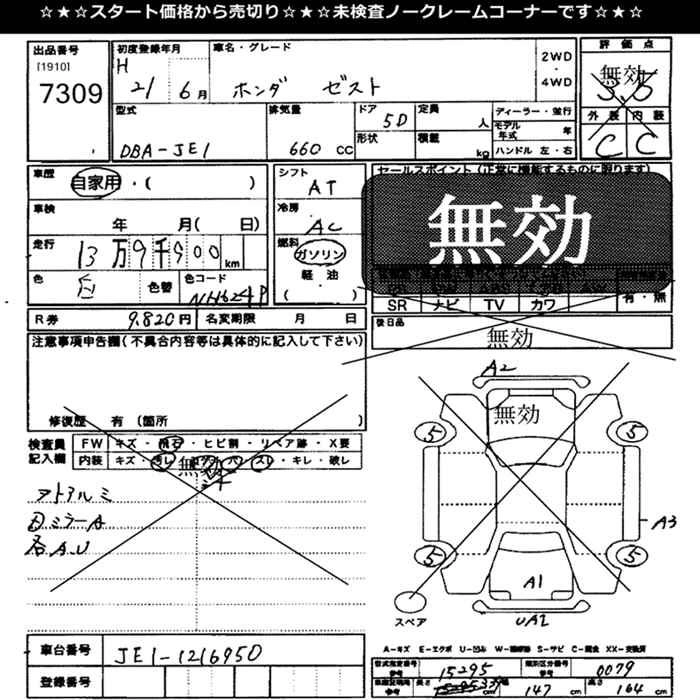 ☆★☆スタート価格から売切り☆★☆未検査ノークレームコーナーです☆★☆
出品番号
[1910]
7309
初度登録年月
H
21
6月
車名・グレード
ホンダ ゼスト
2WD
・
4WD
評価点
無効
3.5
外装 内装
C C
型式
DBA-JE1
排気量
660 CC
ドア
5D
定員
人
形状
積載
kg
ディーラー・並行
モデル年式
年
ハンドル 左・右
車歴
自家用・( )
シフト
AT
車検
年 月( 日)
冷房
AC
走行
13万9千900km
燃料
ガソリン
軽・油
( )
色
色替
色コード
NH624P
セールスポイント (正常に機能するものに限ります)
無効
SR ナビ TV カワ
有・無
R券
9,820円
名変期限 月 日
後日品
無効
注意事項申告欄(不具合内容等は具体的に記入して下さい)
修復歴 有 (箇所 )
検査員
記入欄
FW キズ・飛石・ヒビ割・リペア跡・X要
内装 キズ・
スレ・キレ・破レ
無効
アトアルミ
ミラーA
各A.U
A2
無効
5 5
A3
5 5
A1
スペア
UA2
車台番号
JE1-1216950
登録番号
A-キズ E-エクボ U-凹み W-補修跡 S-サビ C-腐食 XX-交換済
型式指定番号
参考
15295
類別区分番号
参考
0079
長さ
cm
幅
147 cm
高さ
164 cm